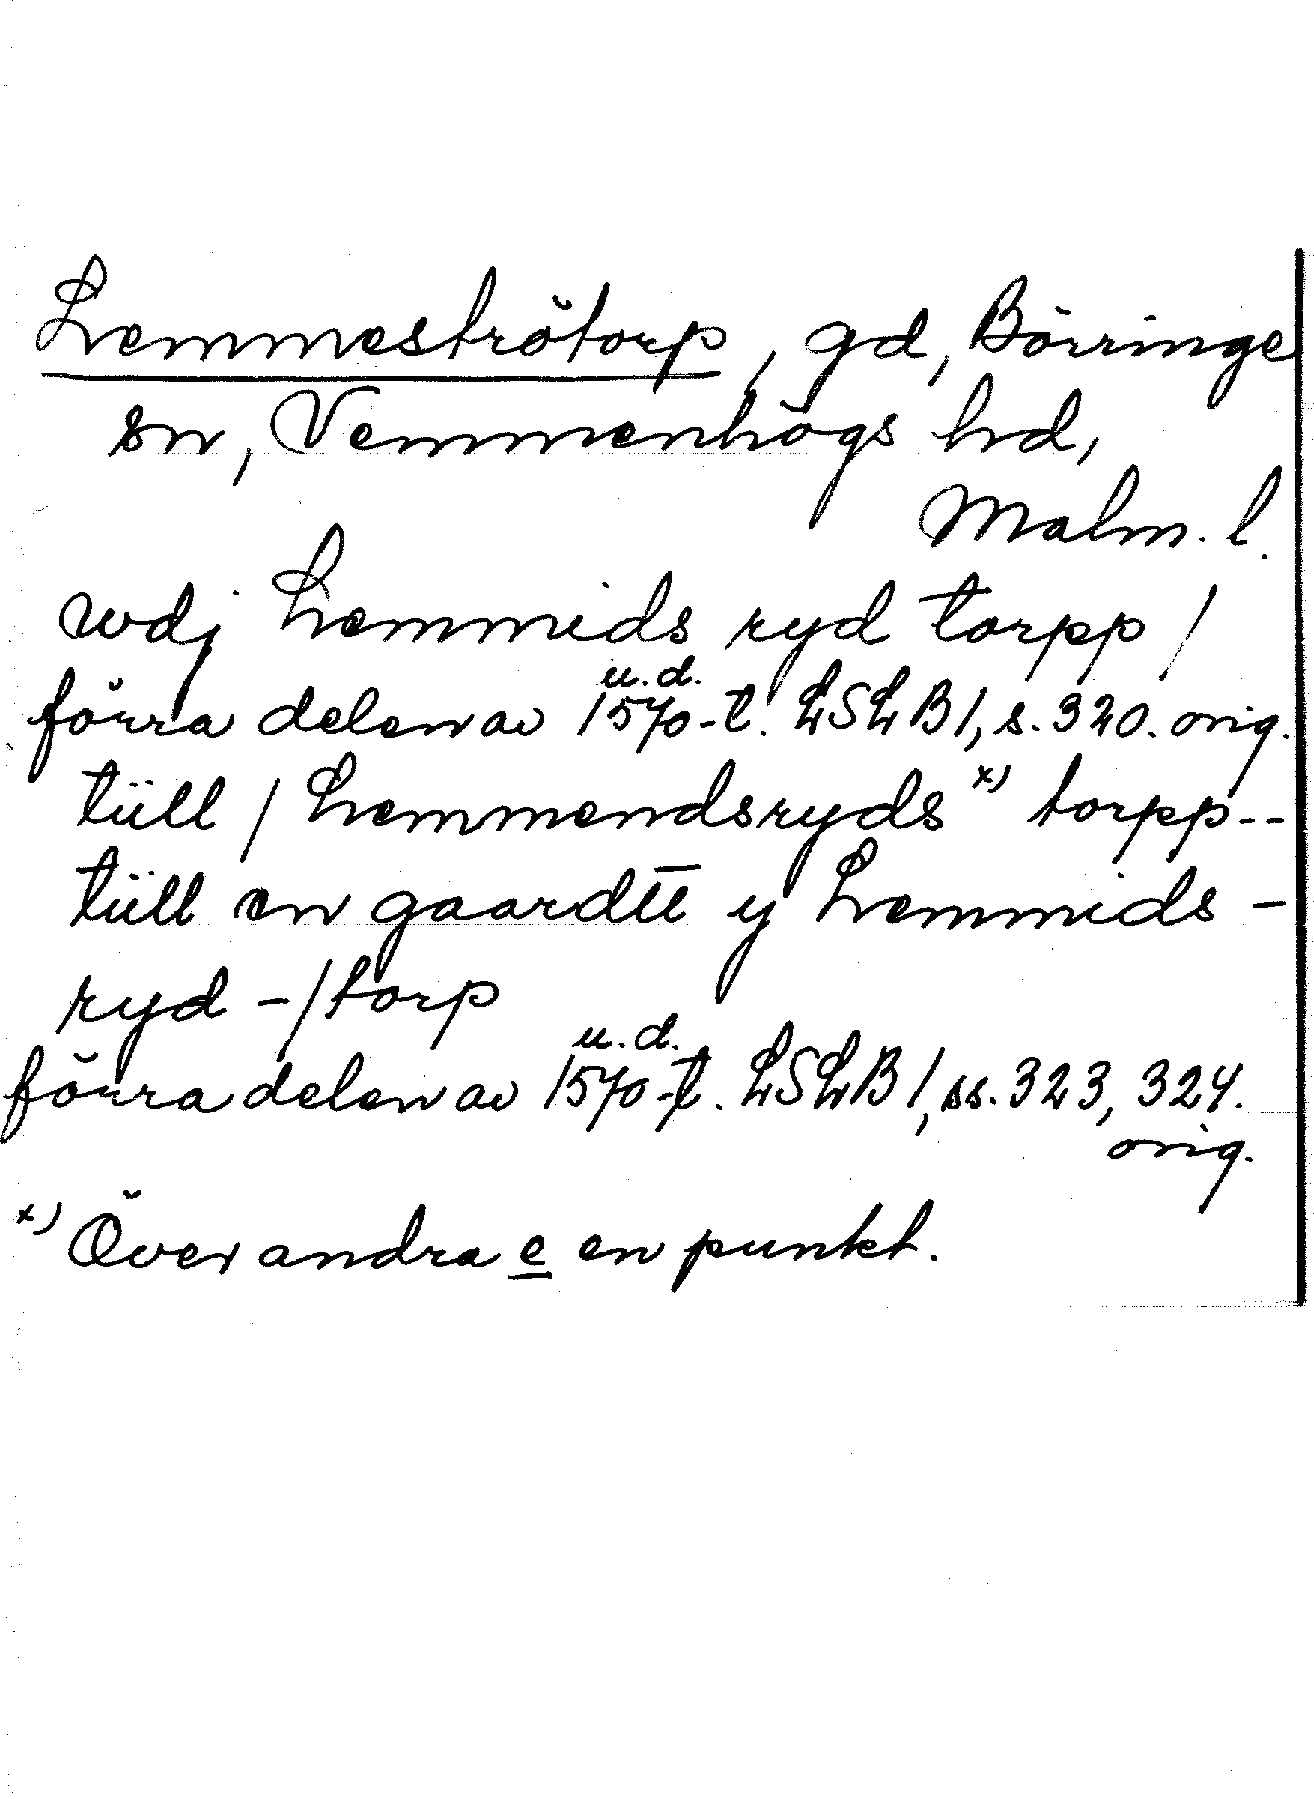 Lemmeströtorp, gd, Börringe
sn, Vemmenhögs hd,
Malm. l.
wdj Lemmids ryd torpp /
u.d.
förra delen av 1570-t. LSLB1, s. 320. orig.
tüll / Lemmendsryds x) torpp--
tüll en gaardtt y Lemmids-
ryd -/torp
u.d.
förra delen av 1570-t. LSLB1, ss. 323, 324.
orig.
x) Över andra e en punkt.